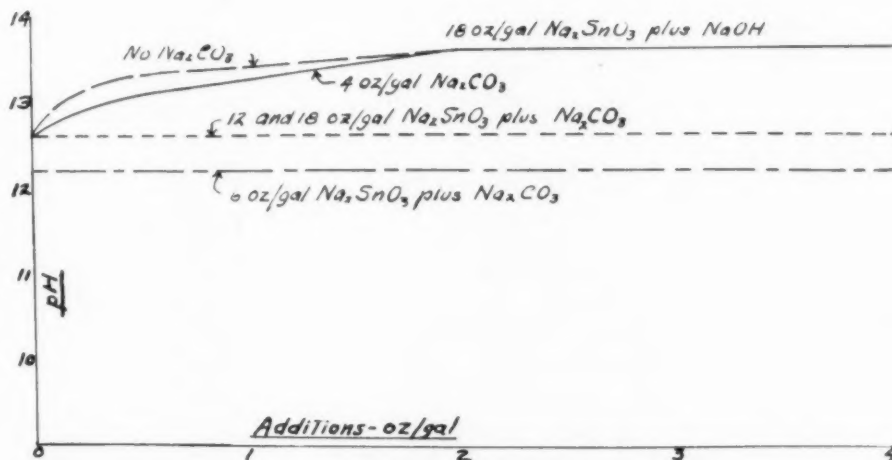 14
18 oz/gal Na₂SnO₃ plus NaOH
No Na₂CO₃
4 oz/gal Na₂CO₃
13
12 and 18 oz/gal Na₂SnO₃ plus Na₂CO₃
12
6 oz/gal Na₂SnO₃ plus Na₂CO₃
11
pH
10
Additions-oz/gal
0 1 2 3 4